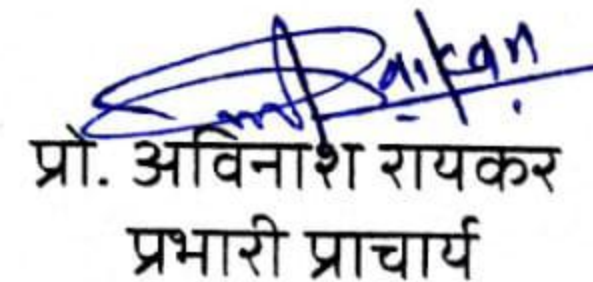 प्रो. अविनाश रायकर
प्रभारी प्राचार्य